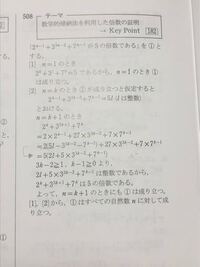 508 テーマ
数学的帰納法を利用した倍数の証明
→ Key Point 182
「2ⁿ⁻¹+3³ⁿ⁻²+7ⁿ⁻¹ が5の倍数である」を①とする。
[1] n=1のとき
2⁰+3¹+7⁰=5であるから，n=1のとき①
は成り立つ。
[2] n=kのとき①が成り立つと仮定すると
2ᵏ⁻¹+3³ᵏ⁻²+7ᵏ⁻¹=5l (lは整数)
とおける。
n=k+1のとき
2ᵏ+3³ᵏ⁺¹+7ᵏ
=2×2ᵏ⁻¹+27×3³ᵏ⁻²+7×7ᵏ⁻¹
=2(5l−3³ᵏ⁻²−7ᵏ⁻¹)+27×3³ᵏ⁻²+7×7ᵏ⁻¹
=5(2l+5×3³ᵏ⁻²+7ᵏ⁻¹)
3k−2≧1，k−1≧0より，
2l+5×3³ᵏ⁻²+7ᵏ⁻¹は整数であるから，
2ᵏ+3³ᵏ⁺¹+7ᵏは5の倍数である。
よって，n=k+1のときにも①は成り立つ。
[1]，[2]から，①はすべての自然数nに対して成
り立つ。